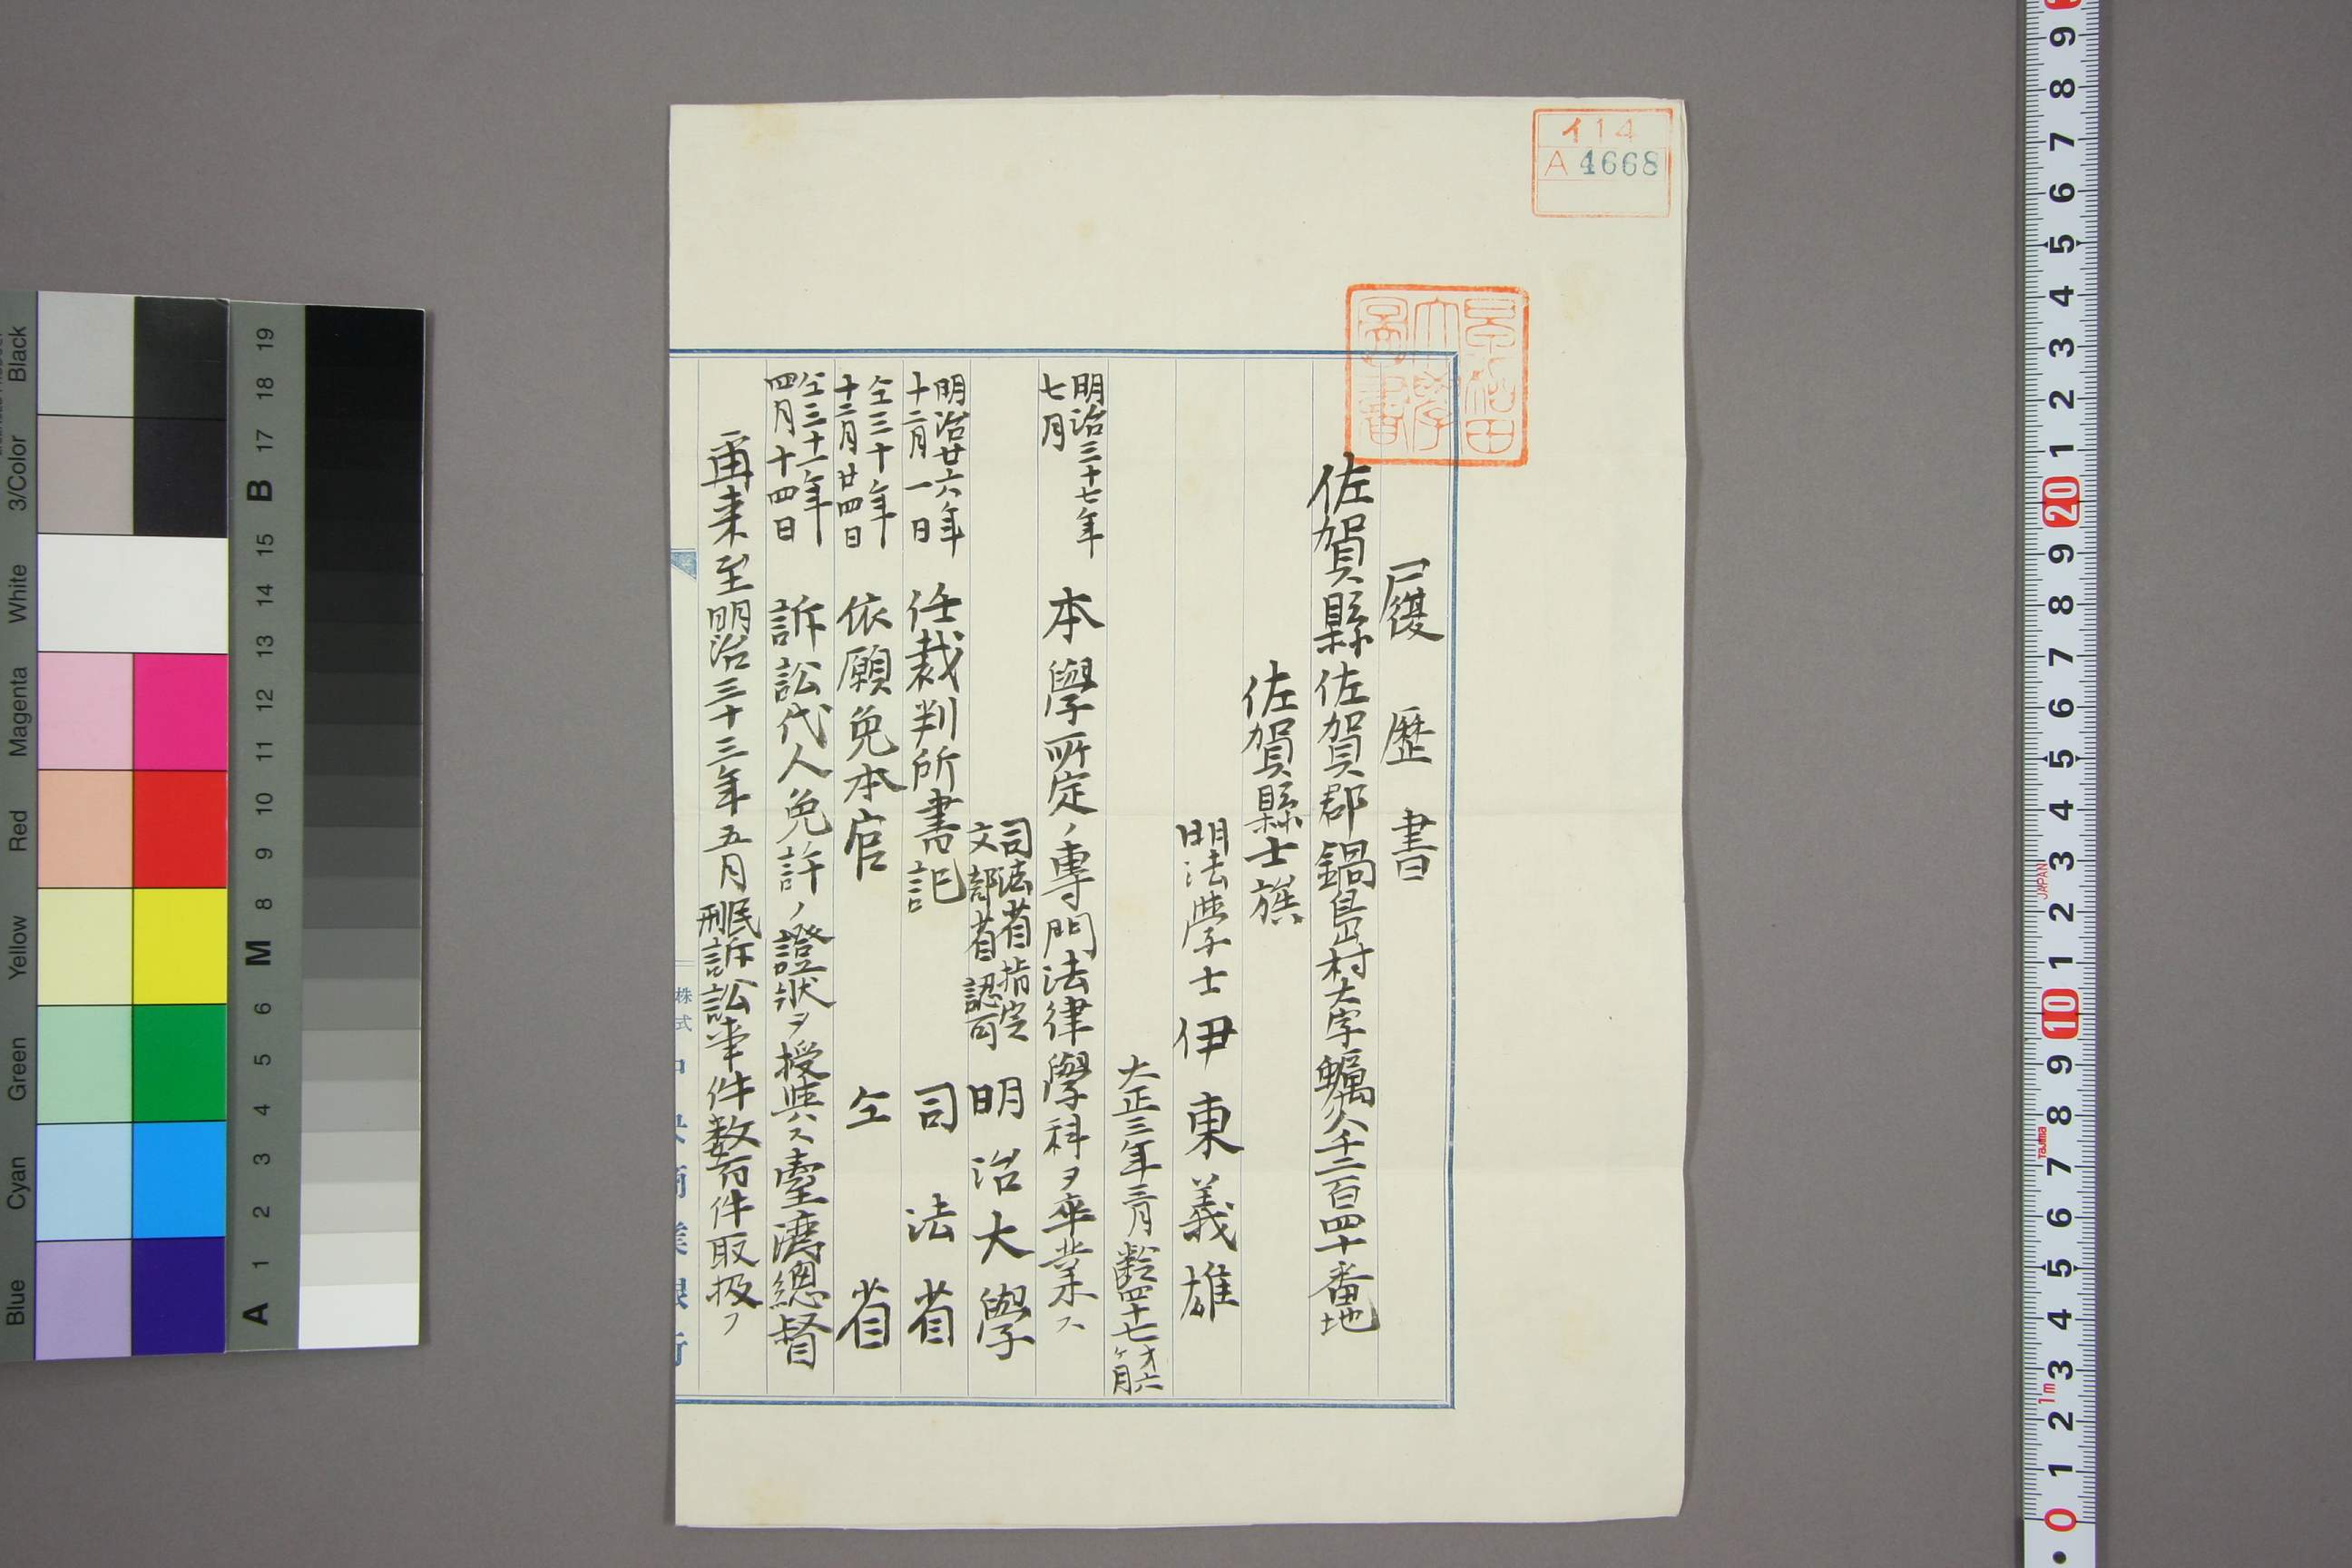 履歴書
佐賀縣佐賀郡鍋島村大字蠣久千二百四十番地
佐賀縣士族
明法学士 伊東義雄
大正三年三月齢四十七才六ヶ月
明治三十七年七月 本學所定ノ專門法律學科ヲ卒業ス
司法省指定 文部省認可 明治大學
明治廿六年十二月一日 任裁判所書記 司法省
仝三十年十二月廿四日 依願免本官 仝省
仝三十一年四月十四日 訴訟代人免許ノ證状ヲ授與ス 臺湾總督
爾来至明治三十三年五月民刑訴訟事件数百件取扱フ
株式
イ14
A 4668
早稲田大學圖書
Black
3/Color
White
Magenta
Red
Yellow
Green
Cyan
Blue
A 1 2 3 4 5 6 M 8 9 10 11 12 13 14 15 B 17 18 19
9 8 7 6 5 4 3 2 1 20 9 8 7 6 5 4 3 2 1 10 9 8 7 6 5 4 3 2 1 0
JAPAN
Tajima
1m